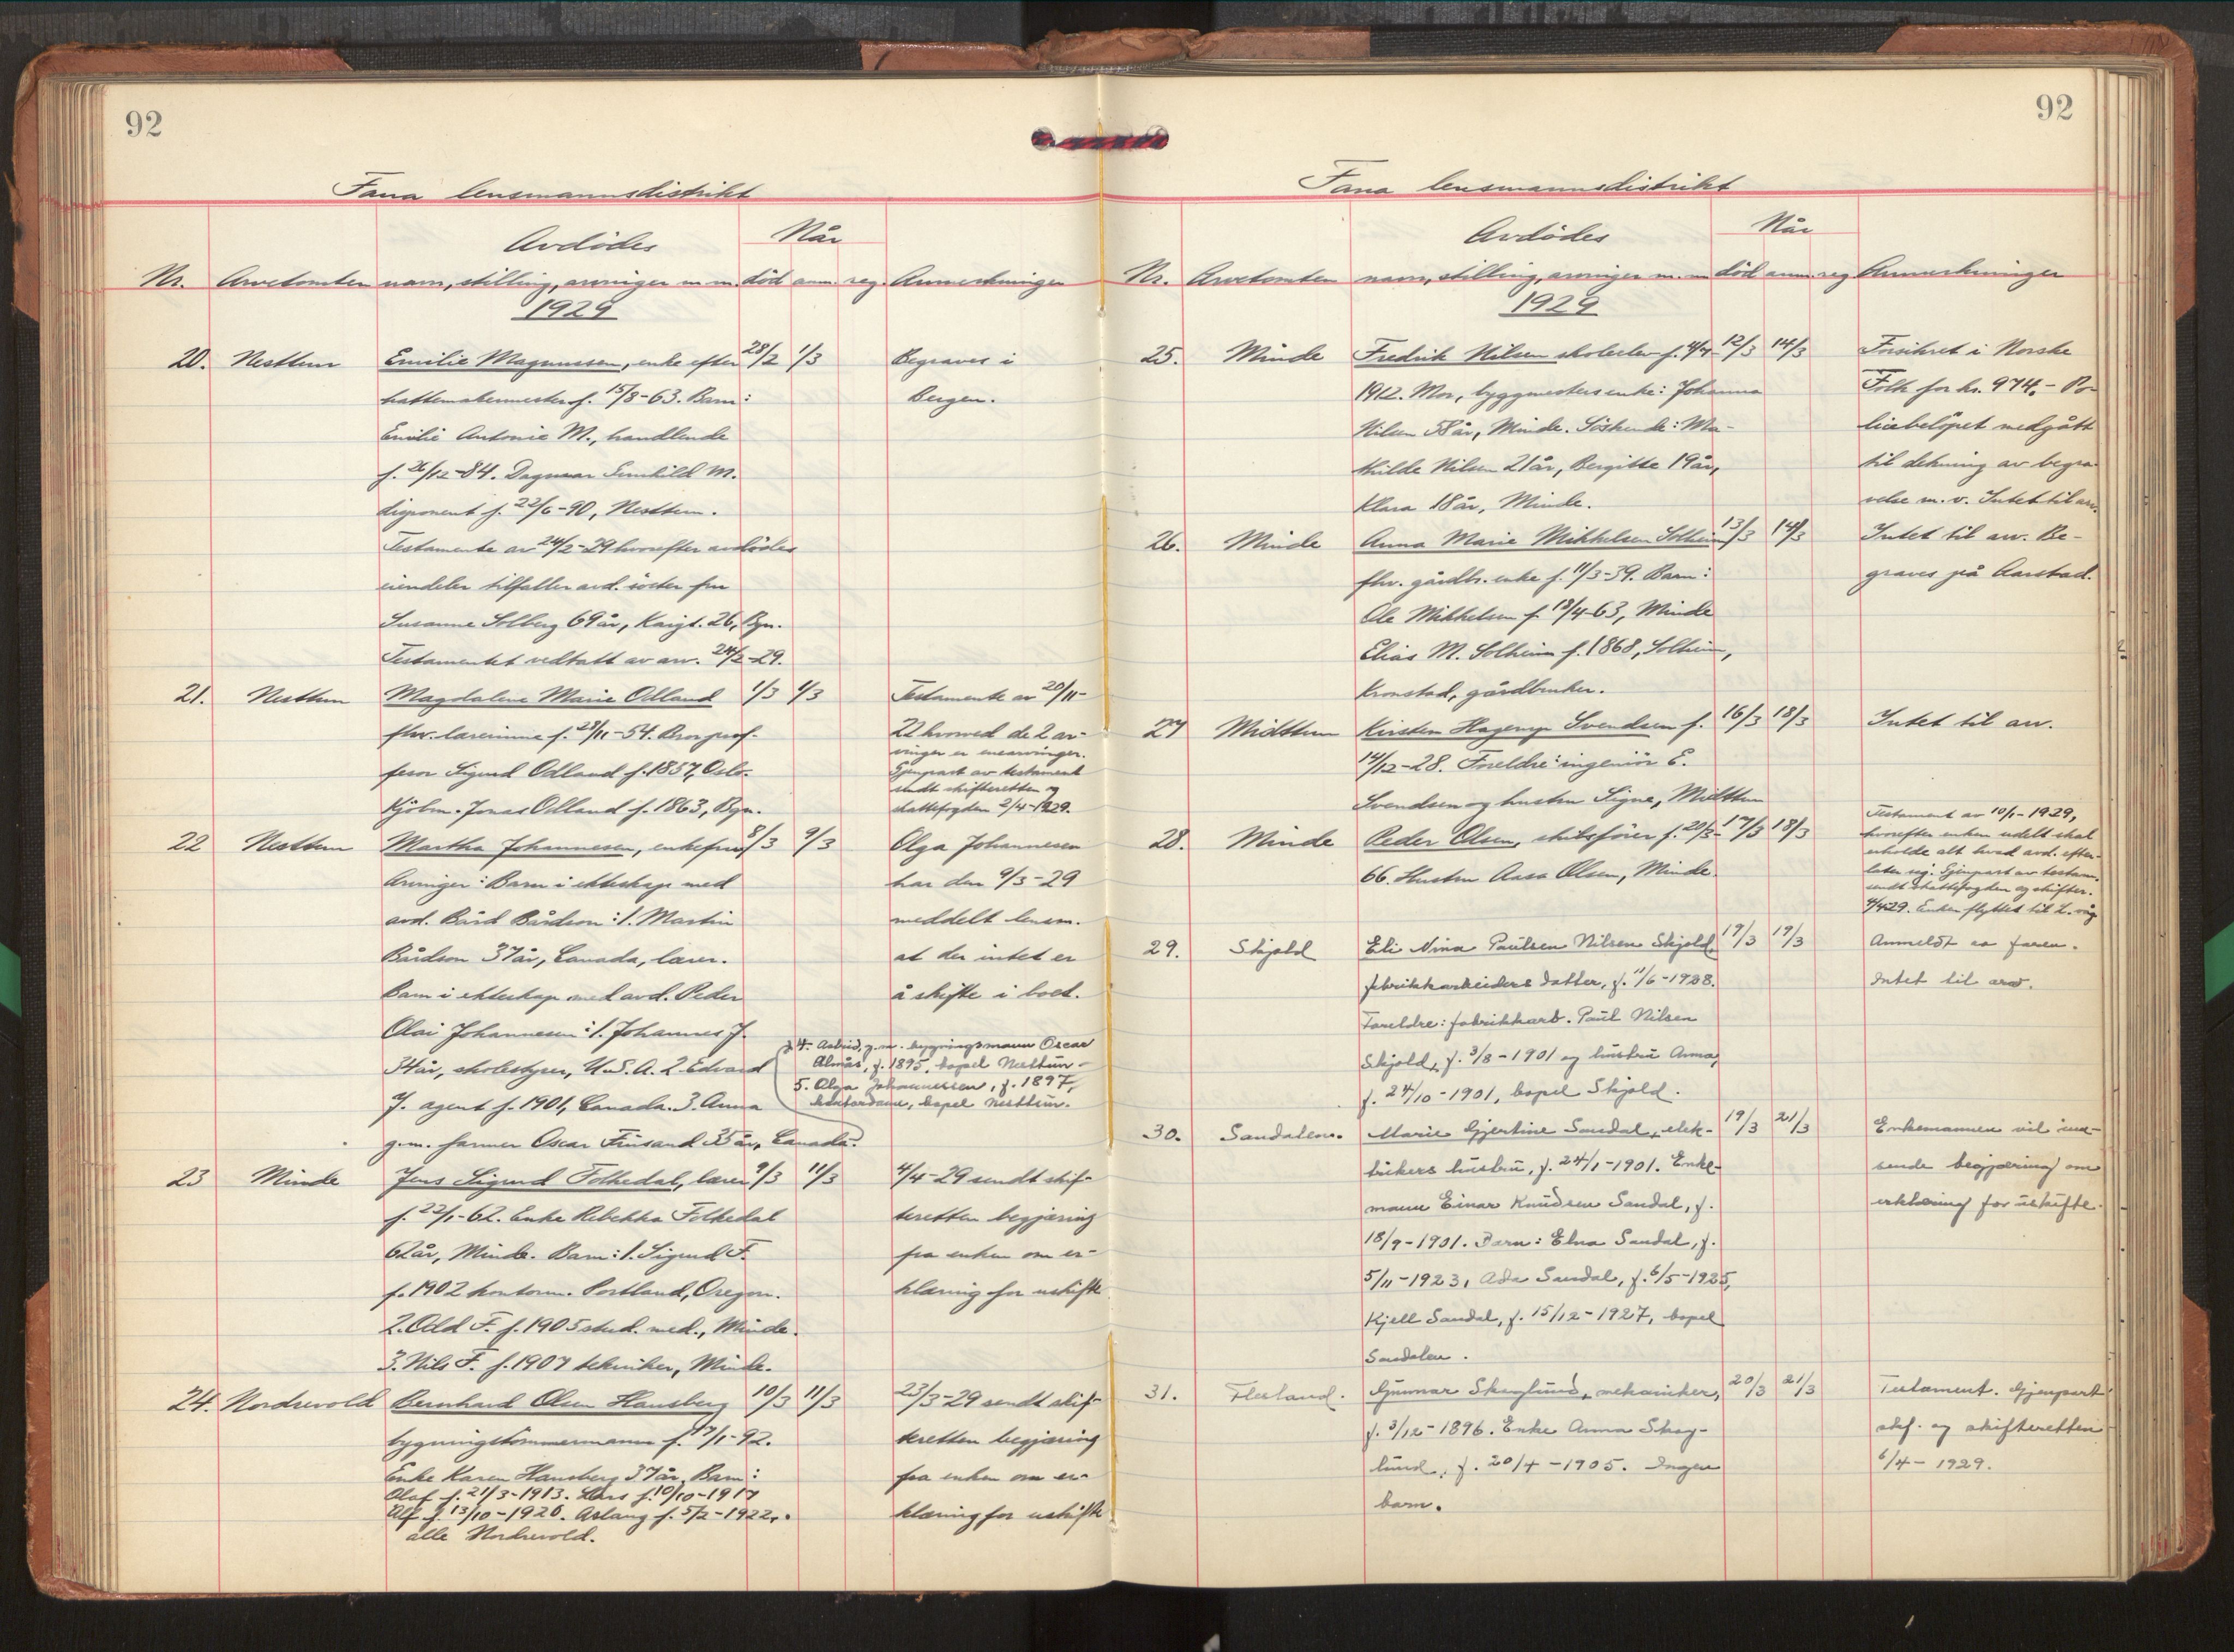 92
Fana lensmannsdistrikt
Avdödes
Når
Nr. Arvetomten navn, stilling, arvinger m.m. död anm. reg. Anmerkninger
1929
20. Nesttun Emilie Magnussen, enke efter 28/2 1/3 Begraves i
hattemakermester f. 15/8-63. Barn: Bergen.
Emilie Antonie M., handlende
f. 26/12-84. Dagmar M.
disponent f. 22/6-90, Nesttun.
Testamente av 24/2-29 hvorefter avdödes
eiendeler tilfaller avd. söster fru
Susanne Solberg 69 år, 26, Bgn.
Testamentet vedtatt av arv. 24/2-29.
21. Nesttun Magdalene Marie Odland 1/3 4/3 Testamente av 20/11-
fhv. lærerinne f. 23/11-54. Bror prof- 22 hvorved de 2 ar-
vinger er enearvinger.
fessor Sigurd Odland f. 1857, Oslo. Gjenpart av testament
sendt skifteretten og
Kjöbm. Jonas Odland f. 1863, Bgn. skattefogden 2/4-1929.
22 Nesttun Martha Johannesen, enkefru 8/3 9/3 Olga Johannesen
Arvinger: Barn i ekteskap med har den 9/3-29
avd. Bård Bårdson: 1. Martin meddelt lensm.
Bårdson 37 år, Canada, lærer. at der intet er
Barn i ekteskap med avd. Peder å skifte i boet.
Olai Johannesen: 1. Johannes J.
34 år, skolestyrer, U.S.A. 2. Edvard
J. agent f. 1901, Canada. 3. Anna
4. Astrid, g.m. bygningsmann Oscar
Almås, f. 1895, bopel Nesttun -
5. Olga Johannessen, f. 1897,
kontordame, bopel Nesttun.
g.m. farmer Oscar Finsand 35 år, Canada.
23 Minde Jens Sigurd Folkedal, lærer 9/3 11/3 4/4-29 sendt skif-
f. 22/1-62. Enke Rebekka Folkedal teretten begjæring
62 år, Minde. Barn: 1. Sigurd F. fra enken om er-
f. 1902 kontorm. Portland, Oregon. klæring for uskifte
2. Odd F. f. 1905 stud. med., Minde.
3. Nils F. f. 1907 tekniker, Minde.
24. Nordrevold Bernhard Olsen Hausberg 10/3 11/3 23/3-29 sendt skif-
bygningstömmermann f. 17/1-92. teretten begjæring
Enke Karen Hausberg 37 år, Barn: fra enken om er-
Olaf f. 21/3-1913. Lars f. 10/10-1917
Alf f. 13/10-1920. Aslaug f. 5/2-1922, klæring for uskifte
alle Nordrevold.
92
Fana lensmannsdistrikt
Avdödes
Når
Nr. Arvetomten navn, stilling, arvinger m.m. död anm. reg Anmerkninger
1929
25. Minde Fredrik Nilsen skoleelev f. 4/4- 12/3 14/3 Forsikret i Norske
1912. Mor, byggmesters enke: Johanna Folk for kr. 974,- Po-
Nilsen 58 år, Minde. Söskende: Ma- licebelöpet medgått
thilde Nilsen 21 år, Bergitte 19 år, til dekning av begra-
Klara 18 år, Minde. velse m.v. Intet til arv.
26. Minde Anna Marie Mikkelsen Solheim 13/3 14/3 Intet til arv. Be-
fhv. gårdbr. enke f. 11/3-39. Barn: graves på Aarstad.
Ole Mikkelsen f. 18/4-63, Minde
Elias M. Solheim f. 1868, Solheim,
Kronstad, gårdbruker.
27 Midttun Kirsten Svendsen f. 16/3 18/3 Intet til arv.
14/12-28. Foreldre: ingeniör E.
Svendsen og hustru Signe, Midttun
28. Minde Peder Olsen, skibsförer f. 20/3- 17/3 18/3 Testament av 10/1-1929,
hvorefter enken udelt skal
erholde alt hvad avd. efter-
66. Hustru Aasa Olsen, Minde. later sig. Gjenpart av testam.
sendt skattefogden og skifter.
4/4 29. Enken flyttet til L. våg
29. Skjold Eli Nina Paulsen Nilsen Skjold 19/3 19/3 Anmeldt av faren.
fabrikkarbeiders datter, f. 11/6-1928. Intet til arv.
Foreldre: fabrikkarb. Paul Nilsen
Skjold, f. 3/8-1901 og hustru Anna,
f. 24/10-1901, bopel Skjold.
30. Sandalen. Marie Gjertine Sandal, elek- 19/3 21/3 Enkemannen vil inn-
trikers hustru, f. 24/1-1901. Enke- sende begjæring om
mann Einar Knudsen Sandal, f. erklæring for uskifte.
18/9-1901. Barn: Elna Sandal, f.
5/11-1923, Ada Sandal, f. 6/5-1925,
Kjell Sandal, f. 15/12-1927, bopel
Sandalen.
31. Flesland. Gunnar Skoglund, mekaniker, 20/3 21/3 Testament. Gjenpart
f. 3/12-1896. Enke Anna Skog- skf. og skifteretten
lund, f. 20/4-1905. Ingen 6/4-1929.
barn.